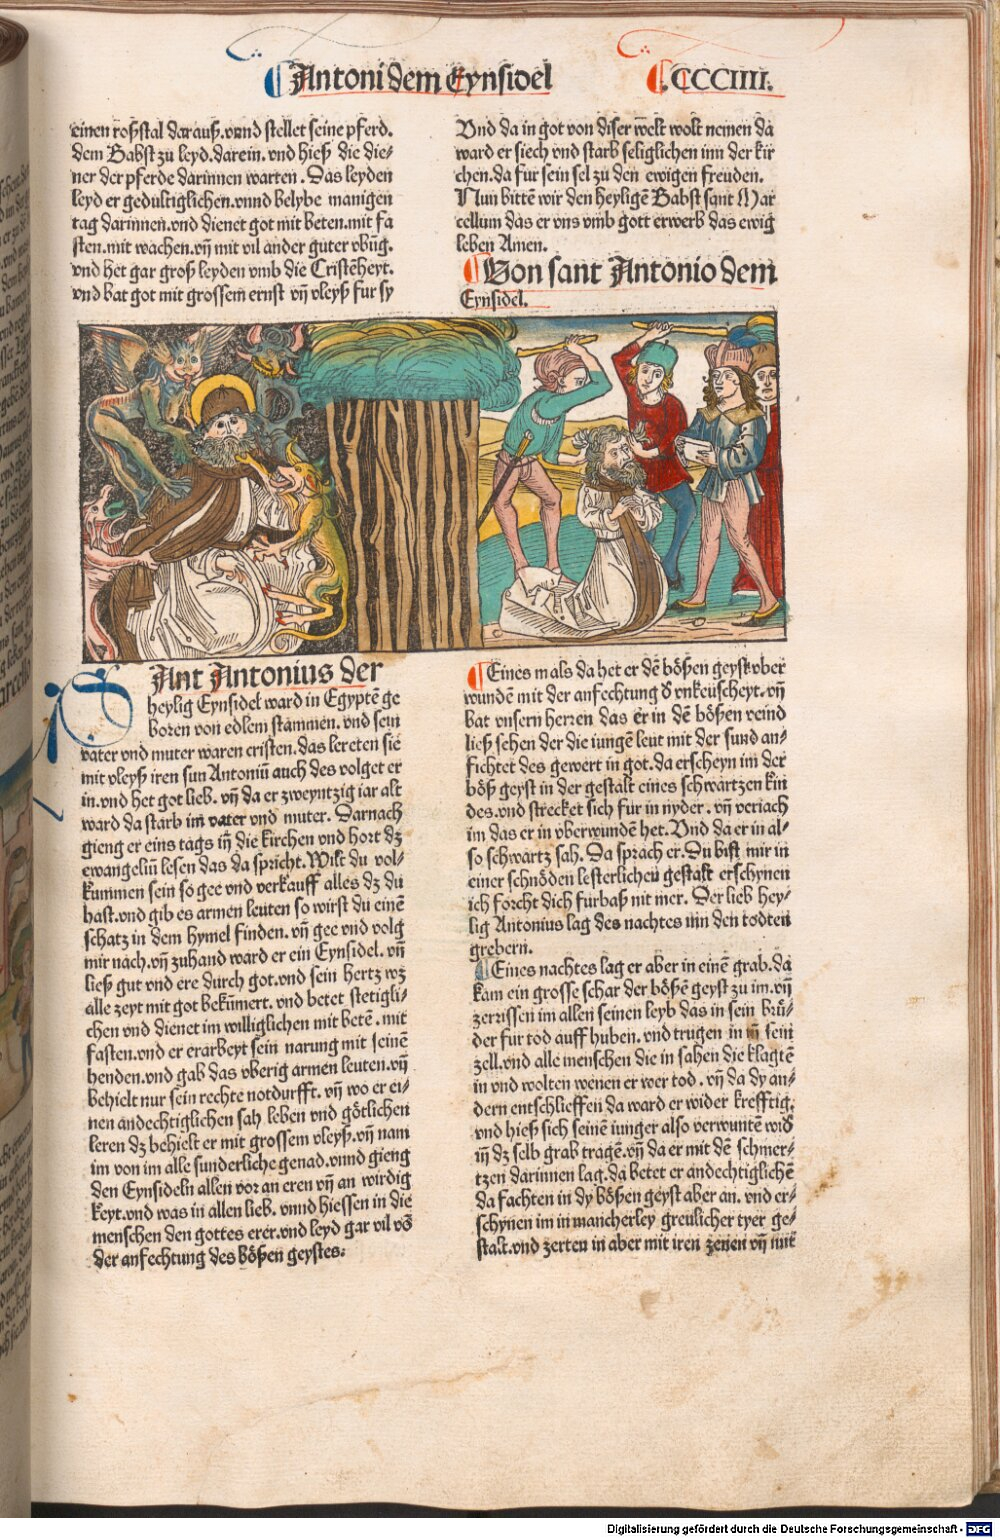 Antoni dem Eynsidel
.CCCIIII.
einen roßstal darauß.vnnd stellet seine pferd.
dem Babst zu leyd.darein.vnd hieß die die-
ner der pferde darinnen warten. Das leyden
leyd er gedultiglichen.vnnd belybe manigen
tag darinnen.vnd dienet got mit beten.mit fa
sten.mit wachen.vñ mit vil ander guter vbūg.
vnd het gar groß leyden vmb die Cristēheyt.
vnd bat got mit grossem ernst vñ vleyß fur sy
Vnd da in got von diser welt wolt nemen da
ward er siech vnd starb seliglichen inn der kir
chen.da fur sein sel zu den ewigen freuden.
Nun bittē wir den heyligē Babst sant Mar
cellum das er vns vmb gott erwerb das ewig
leben Amen.
Von sant Antonio dem
Eynsidel.
SAnt Antonius der
heylig Eynsidel ward in Egyptē ge
boren von edlem stammen. vnd sein
vater vnd muter waren cristen.das lereten sie
mit vleyß iren sun Antoniū auch des volget er
in.vnd het got lieb. vñ da er zweyntzig iar alt
ward da starb im vater vnd muter. Darnach
gieng er eins tags iñ die kirchen vnd hort dz
ewangeliū lesen das da spricht. Wilt du vol-
kummen sein so gee vnd verkauff alles dz du
hast.vnd gib es armen leuten so wirst du einē
schatz in dem hymel finden. vñ gee vnd volg
mir nach.vñ zuhand ward er ein Eynsidel. vñ
ließ gut vnd ere durch got.vnd sein hertz wz
alle zeyt mit got bekūmert. vnd betet stetigli-
chen vnd dienet im williglichen mit betē. mit
fasten.vnd er erarbeyt sein narung mit seinē
henden.vnd gab das vberig armen leuten.vñ
behielt nur sein rechte notdurfft. vñ wo er ei-
nen andechtiglichen sah leben vnd götlichen
leren dz behielt er mit grossem vleyß.vñ nam
im von im alle sunderliche genad.vnnd gieng
den Eynsideln allen vor an eren vñ an wirdig
keyt.vnd was in allen lieb. vnnd hiessen in die
menschen den gottes erer.vnd leyd gar vil vō
der anfechtung des bößen geystes.
Eines mals da het er dē bößen geyst vber
wundē mit der anfechtung d vnkeuscheyt.vñ
bat vnsern herren das er in dē bößen veind
ließ sehen der die iungē leut mit der sund an-
fichtet des gewert in got.da erscheyn im der
böß geyst in der gestalt eines schwartzen kin
des.vnd strecket sich fur in nyder. vñ veriach
im das er in vberwundē het.Vnd da er in al-
so schwartz sah. Da sprach er.Du bist mir in
einer schnöden lesterlichen gestalt erschynen
ich forcht dich furbaß nit mer. Der lieb hey-
lig Antonius lag des nachtes inn den todten
grebern.
Eines nachtes lag er aber in einē grab.da
kam ein grosse schar der bößē geyst zu im.vñ
zerrissen im allen seinen leyb das in sein brü-
der fur tod auff huben. vnd trugen in iñ sein
zell.vnd alle menschen die in sahen die klagtē
in vnd wolten wenen er wer tod. vñ da dy an-
dern entschlieffen da ward er wider krefftig.
vnd hieß sich seinē iunger also verwuntē wid
iñ dz selb grab tragē.vñ da er mit dē schmer-
tzen darinnen lag.da betet er andechtiglichē
da fachten in dy bößen geyst aber an. vnd er-
schynen im in mancherley greulicher tyer ge-
stalt.vnd zerten in aber mit iren zenen vñ mit
Digitalisierung gefördert durch die Deutsche Forschungsgemeinschaft - DFG